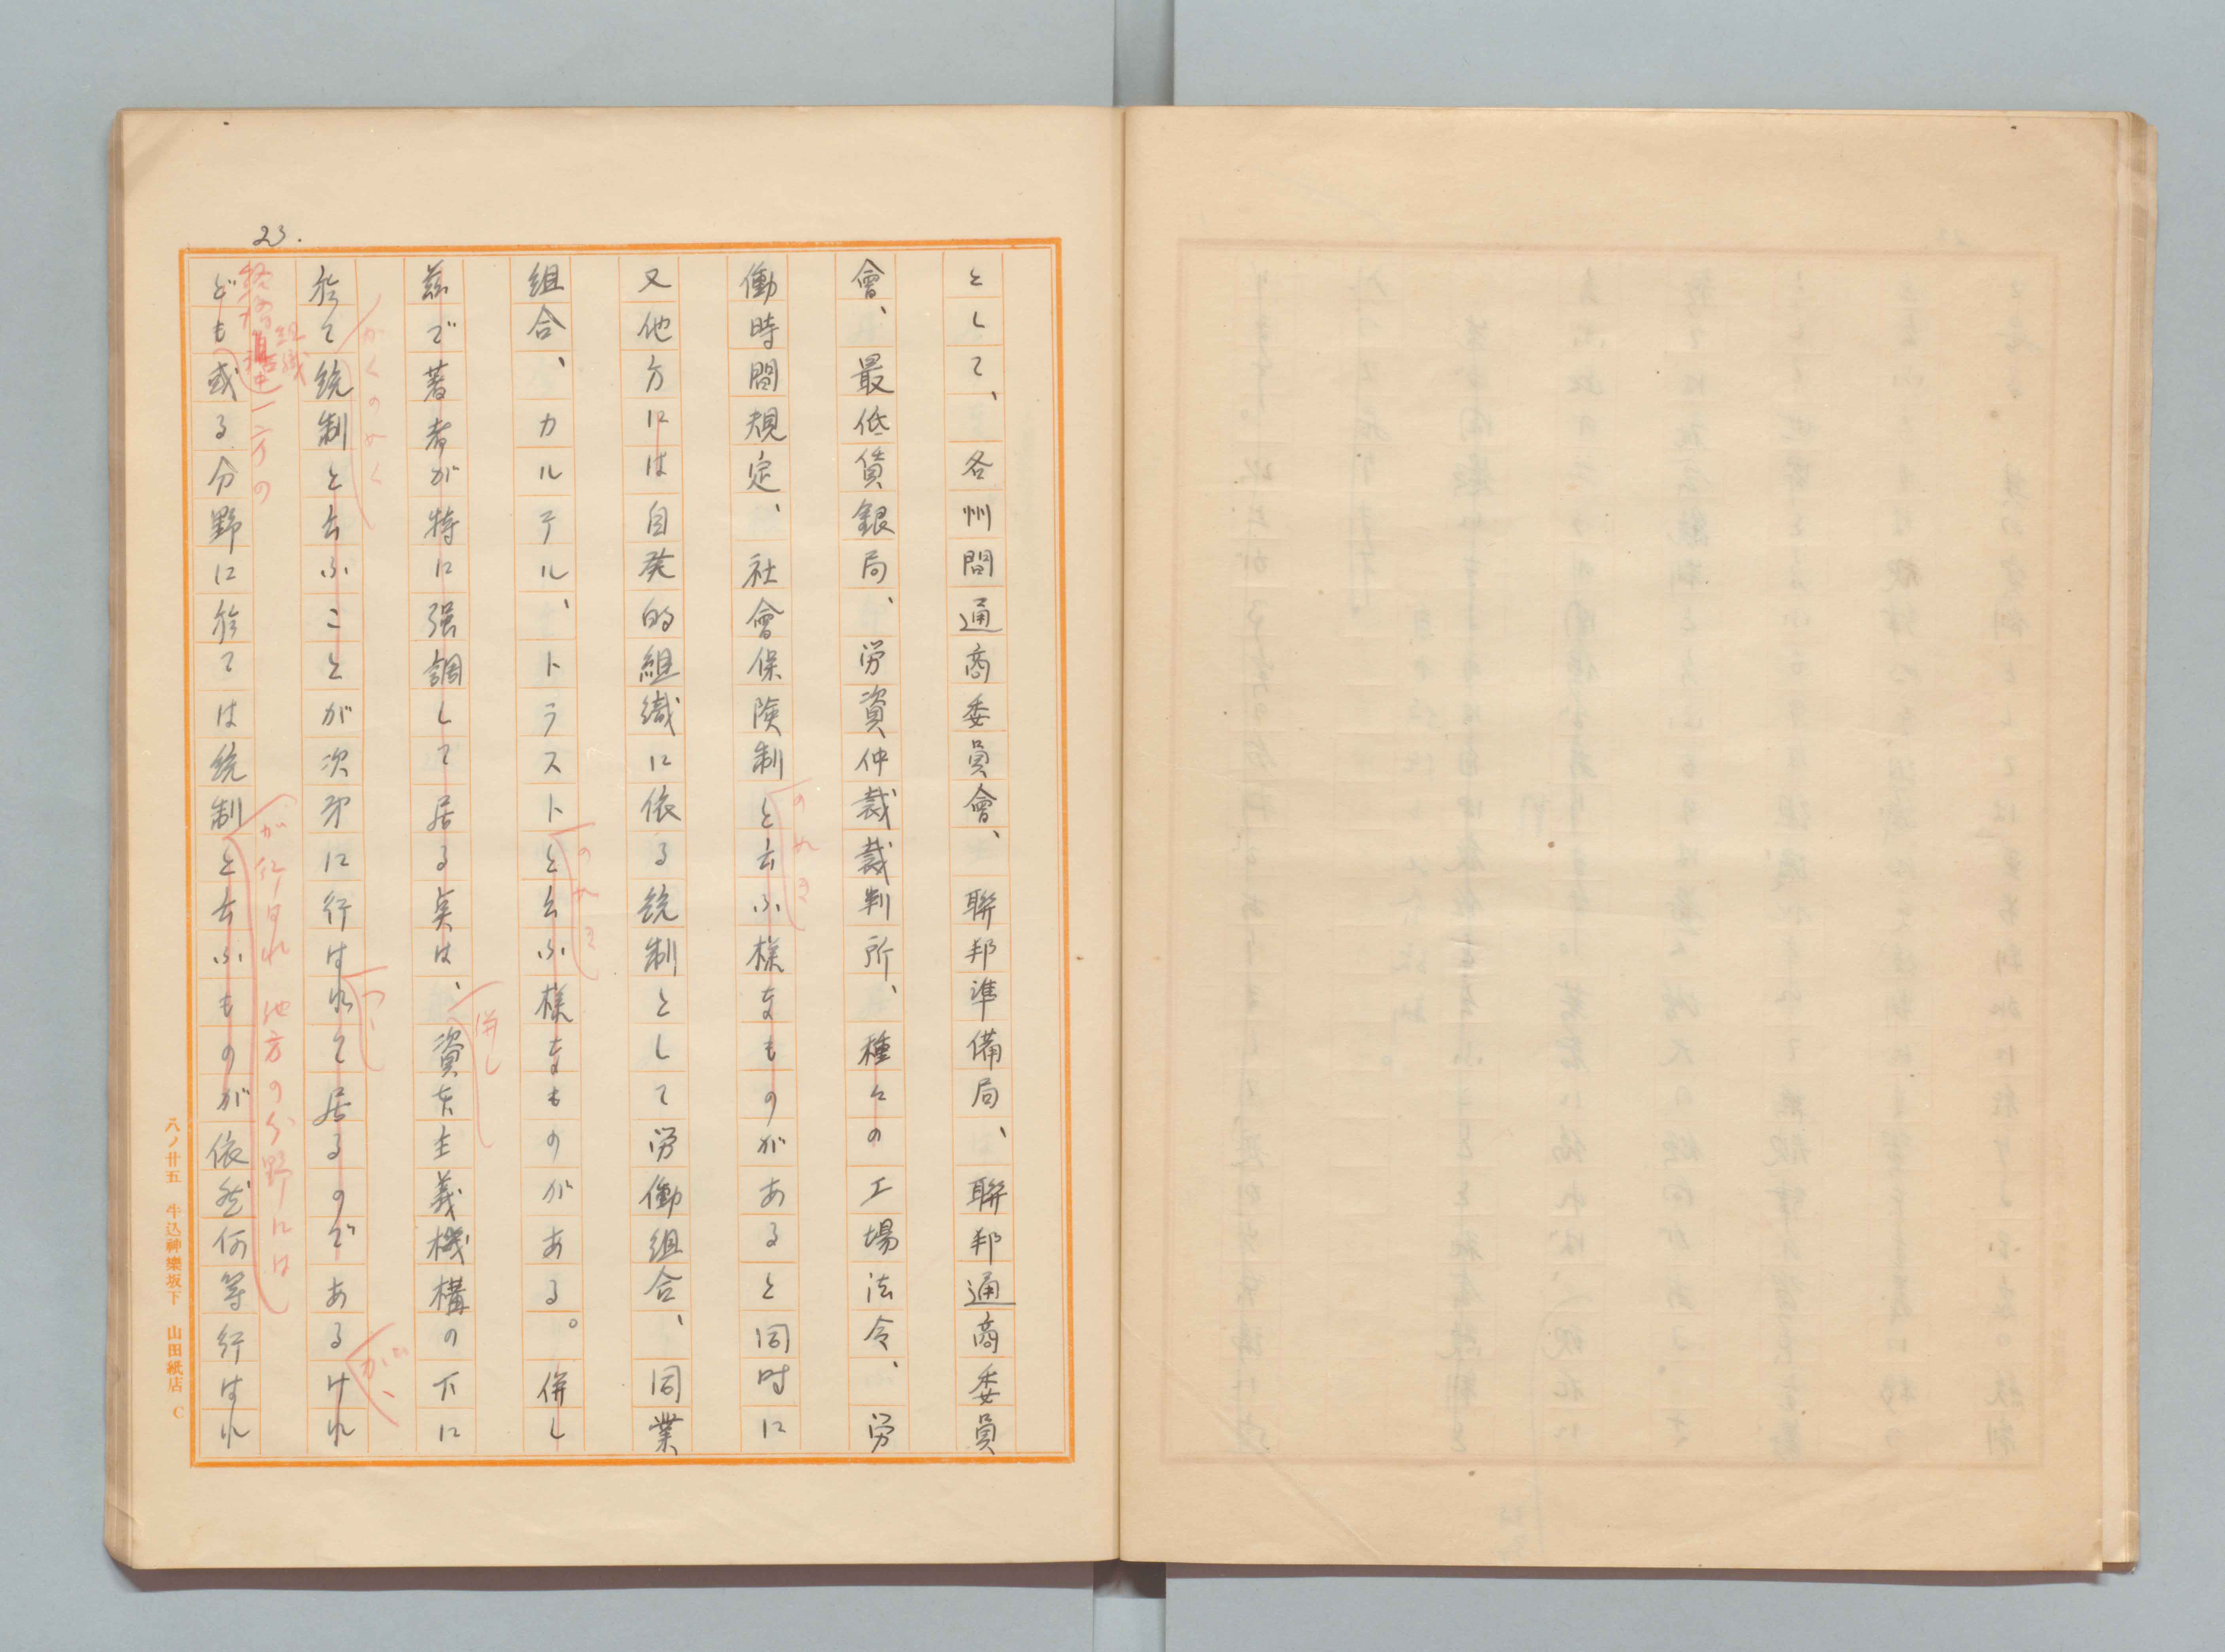 23.
として、各州間通商委員會、聯邦準備局、聯邦通商委員
會、最低賃銀局、労資仲裁裁判所、種々の工場法令、労
働時間規定、社會保険制と云ふ様なものがあると同時に
のれき
又他方には自発的組織に依る統制として労働組合、同業
組合、カルテル、トラストと云ふ様なものがある。併し
のれき
茲で著者が特に强調して居る点は、資本主義機構の下に
併し
於て統制と云ふことが次第に行はれて居るのであるけれ
かくのめく
つゝ
が、
ども或る分野に於ては統制と云ふものが依然何等行はれ
経済
組織
一方の
が行はれ他方の分野には
八ノ廿五 牛込神樂坂下 山田紙店 C